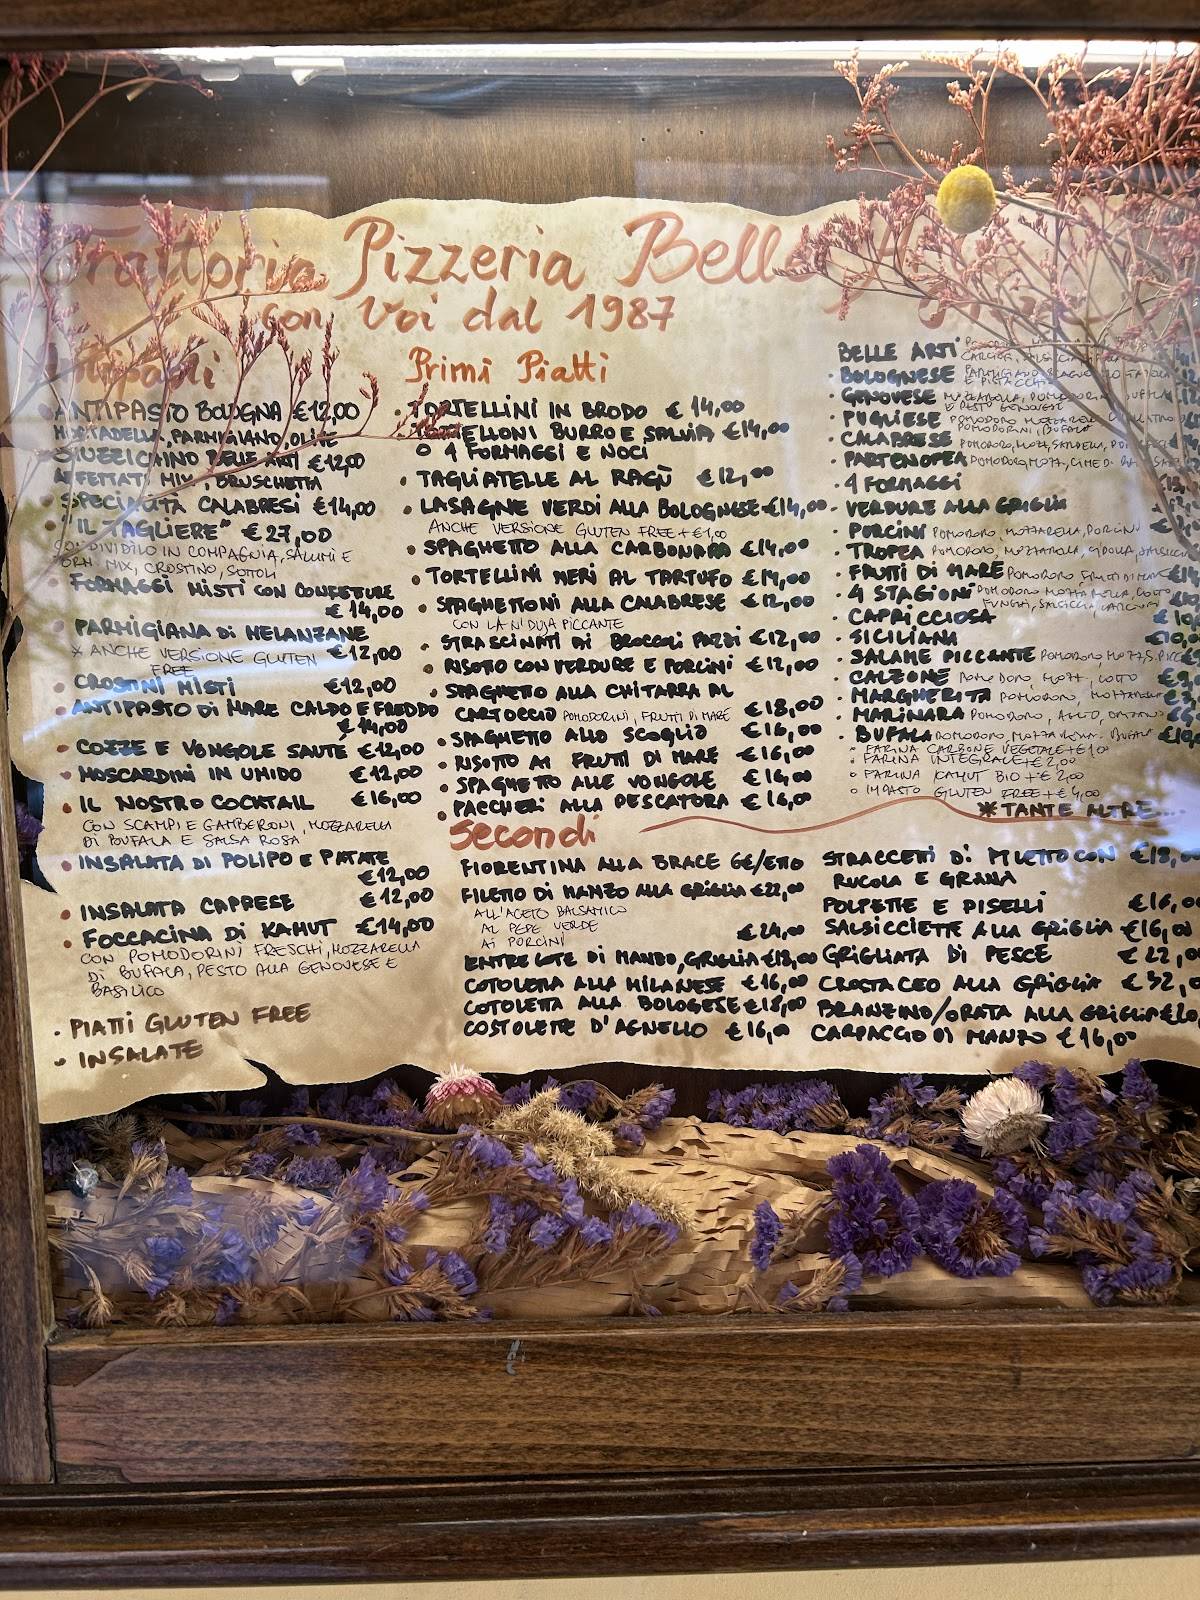 Trattoria Pizzeria Belle
con Voi dal 1987
Antipasti
ANTIPASTO BOLOGNA €12,00
MORTADELLA, PARMIGIANO, OLIVE
STUZZICHINO BELLE ARTI €12,00
AFFETTATI MIX, BRUSCHETTA
SPECIALITÀ CALABRESI €14,00
"IL TAGLIERE" €27,00
CONDIVIDILO IN COMPAGNIA, SALUMI E
FORM. MIX, CROSTINO, SOTTOLI
FORMAGGI MISTI CON CONFETTURE
€14,00
PARMIGIANA DI MELANZANE
* ANCHE VERSIONE GLUTEN €12,00
FREE
CROSTINI MISTI €12,00
ANTIPASTO DI MARE CALDO E FREDDO
€14,00
COZZE E VONGOLE SAUTE €12,00
MOSCARDINI IN UMIDO €12,00
IL NOSTRO COCKTAIL €16,00
CON SCAMPI E GAMBERONI, MOZZARELLA
DI BUFALA E SALSA ROSA
INSALATA DI POLIPO E PATATE
€12,00
INSALATA CAPRESE €12,00
FOCCACINA DI KAMUT €14,00
CON POMODORINI FRESCHI, MOZZARELLA
DI BUFALA, PESTO ALLA GENOVESE E
BASILICO
PIATTI GLUTEN FREE
INSALATE
Primi Piatti
TORTELLINI IN BRODO €14,00
TORTELLONI BURRO E SALVIA €14,00
O 4 FORMAGGI E NOCI
TAGLIATELLE AL RAGÙ €12,00
LASAGNE VERDI ALLA BOLOGNESE €14,00
ANCHE VERSIONE GLUTEN FREE +€1,00
SPAGHETTO ALLA CARBONARA €14,00
TORTELLINI NERI AL TARTUFO €14,00
SPAGHETTONI ALLA CALABRESE €12,00
CON LA N'DUJA PICCANTE
STRASCINATI AI BROCCOLI PAZZI €12,00
RISOTTO CON VERDURE E PORCINI €12,00
SPAGHETTO ALLA CHITARRA AL
CARTOCCIO POMODORINI, FRUTTI DI MARE €18,00
SPAGHETTO ALLO SCOGLIO €16,00
RISOTTO AI FRUTTI DI MARE €16,00
SPAGHETTO ALLE VONGOLE €14,00
PACCHERI ALLA PESCATORA €16,00
BELLE ARTI
BOLOGNESE
E PISTACCHIO
GENOVESE MOZZARELLA,
E PESTO GENOVESE
PUGLIESE POMODORO MOZZARELLA
POMODORINI, BUFALA
CALABRESE POMODORO, MOZZ,
PARTENOPEA POMODORO, MOZZ, CIME DI
4 FORMAGGI
VERDURE ALLA GRIGLIA
PORCINI POMODORO, MOZZARELLA, PORCINI
TROPEA POMODORO, MOZZARELLA, CIPOLLA,
FRUTTI DI MARE POMODORO FRUTTI DI MARE
4 STAGIONI POMODORO MOZZARELLA, COTTO
FUNGHI, SALSICCIA, CARCIOFI
CAPRICCIOSA
SICILIANA
SALAME PICCANTE POMODORO, MOZZ,
CALZONE POMODORO, MOZZ, COTTO
MARGHERITA POMODORO, MOZZARELLA
MARINARA POMODORO, AGLIO, ORIGANO
BUFALA POMODORO, MOZZARELLA BUFALA
FARINA CARBONE VEGETALE +€1,00
FARINA INTEGRALE +€2,00
FARINA KAMUT BIO +€2,00
IMPASTO GLUTEN FREE +€4,00
*TANTE ALTRE...
Secondi
FIORENTINA ALLA BRACE 6€/ETTO
FILETTO DI MANZO ALLA GRIGLIA €22,00
ALL'ACETO BALSAMICO
AL PEPE VERDE
AI PORCINI €24,00
ENTRECOTE DI MANZO, GRIGLIA €18,00
COTOLETTA ALLA MILANESE €16,00
COTOLETTA ALLA BOLOGESE €18,00
COSTOLETTE D'AGNELLO €16,00
STRACCETTI DI FILETTO CON €18,00
RUCOLA E GRANA
POLPETTE E PISELLI €16,00
SALSICCIETTE ALLA GRIGLIA €16,00
GRIGLIATA DI PESCE €22,00
CROSTACEO ALLA GRIGLIA €32,0
BRANZINO/ORATA ALLA GRIGLIA €20,
CARPACCIO DI MANZO €16,00